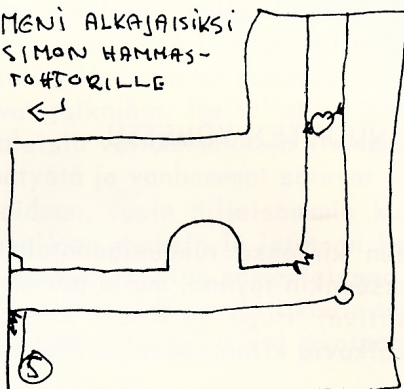 MENI ALKAJAISIKSI
SIMON HAMMAS-
TOHTORILLE
S